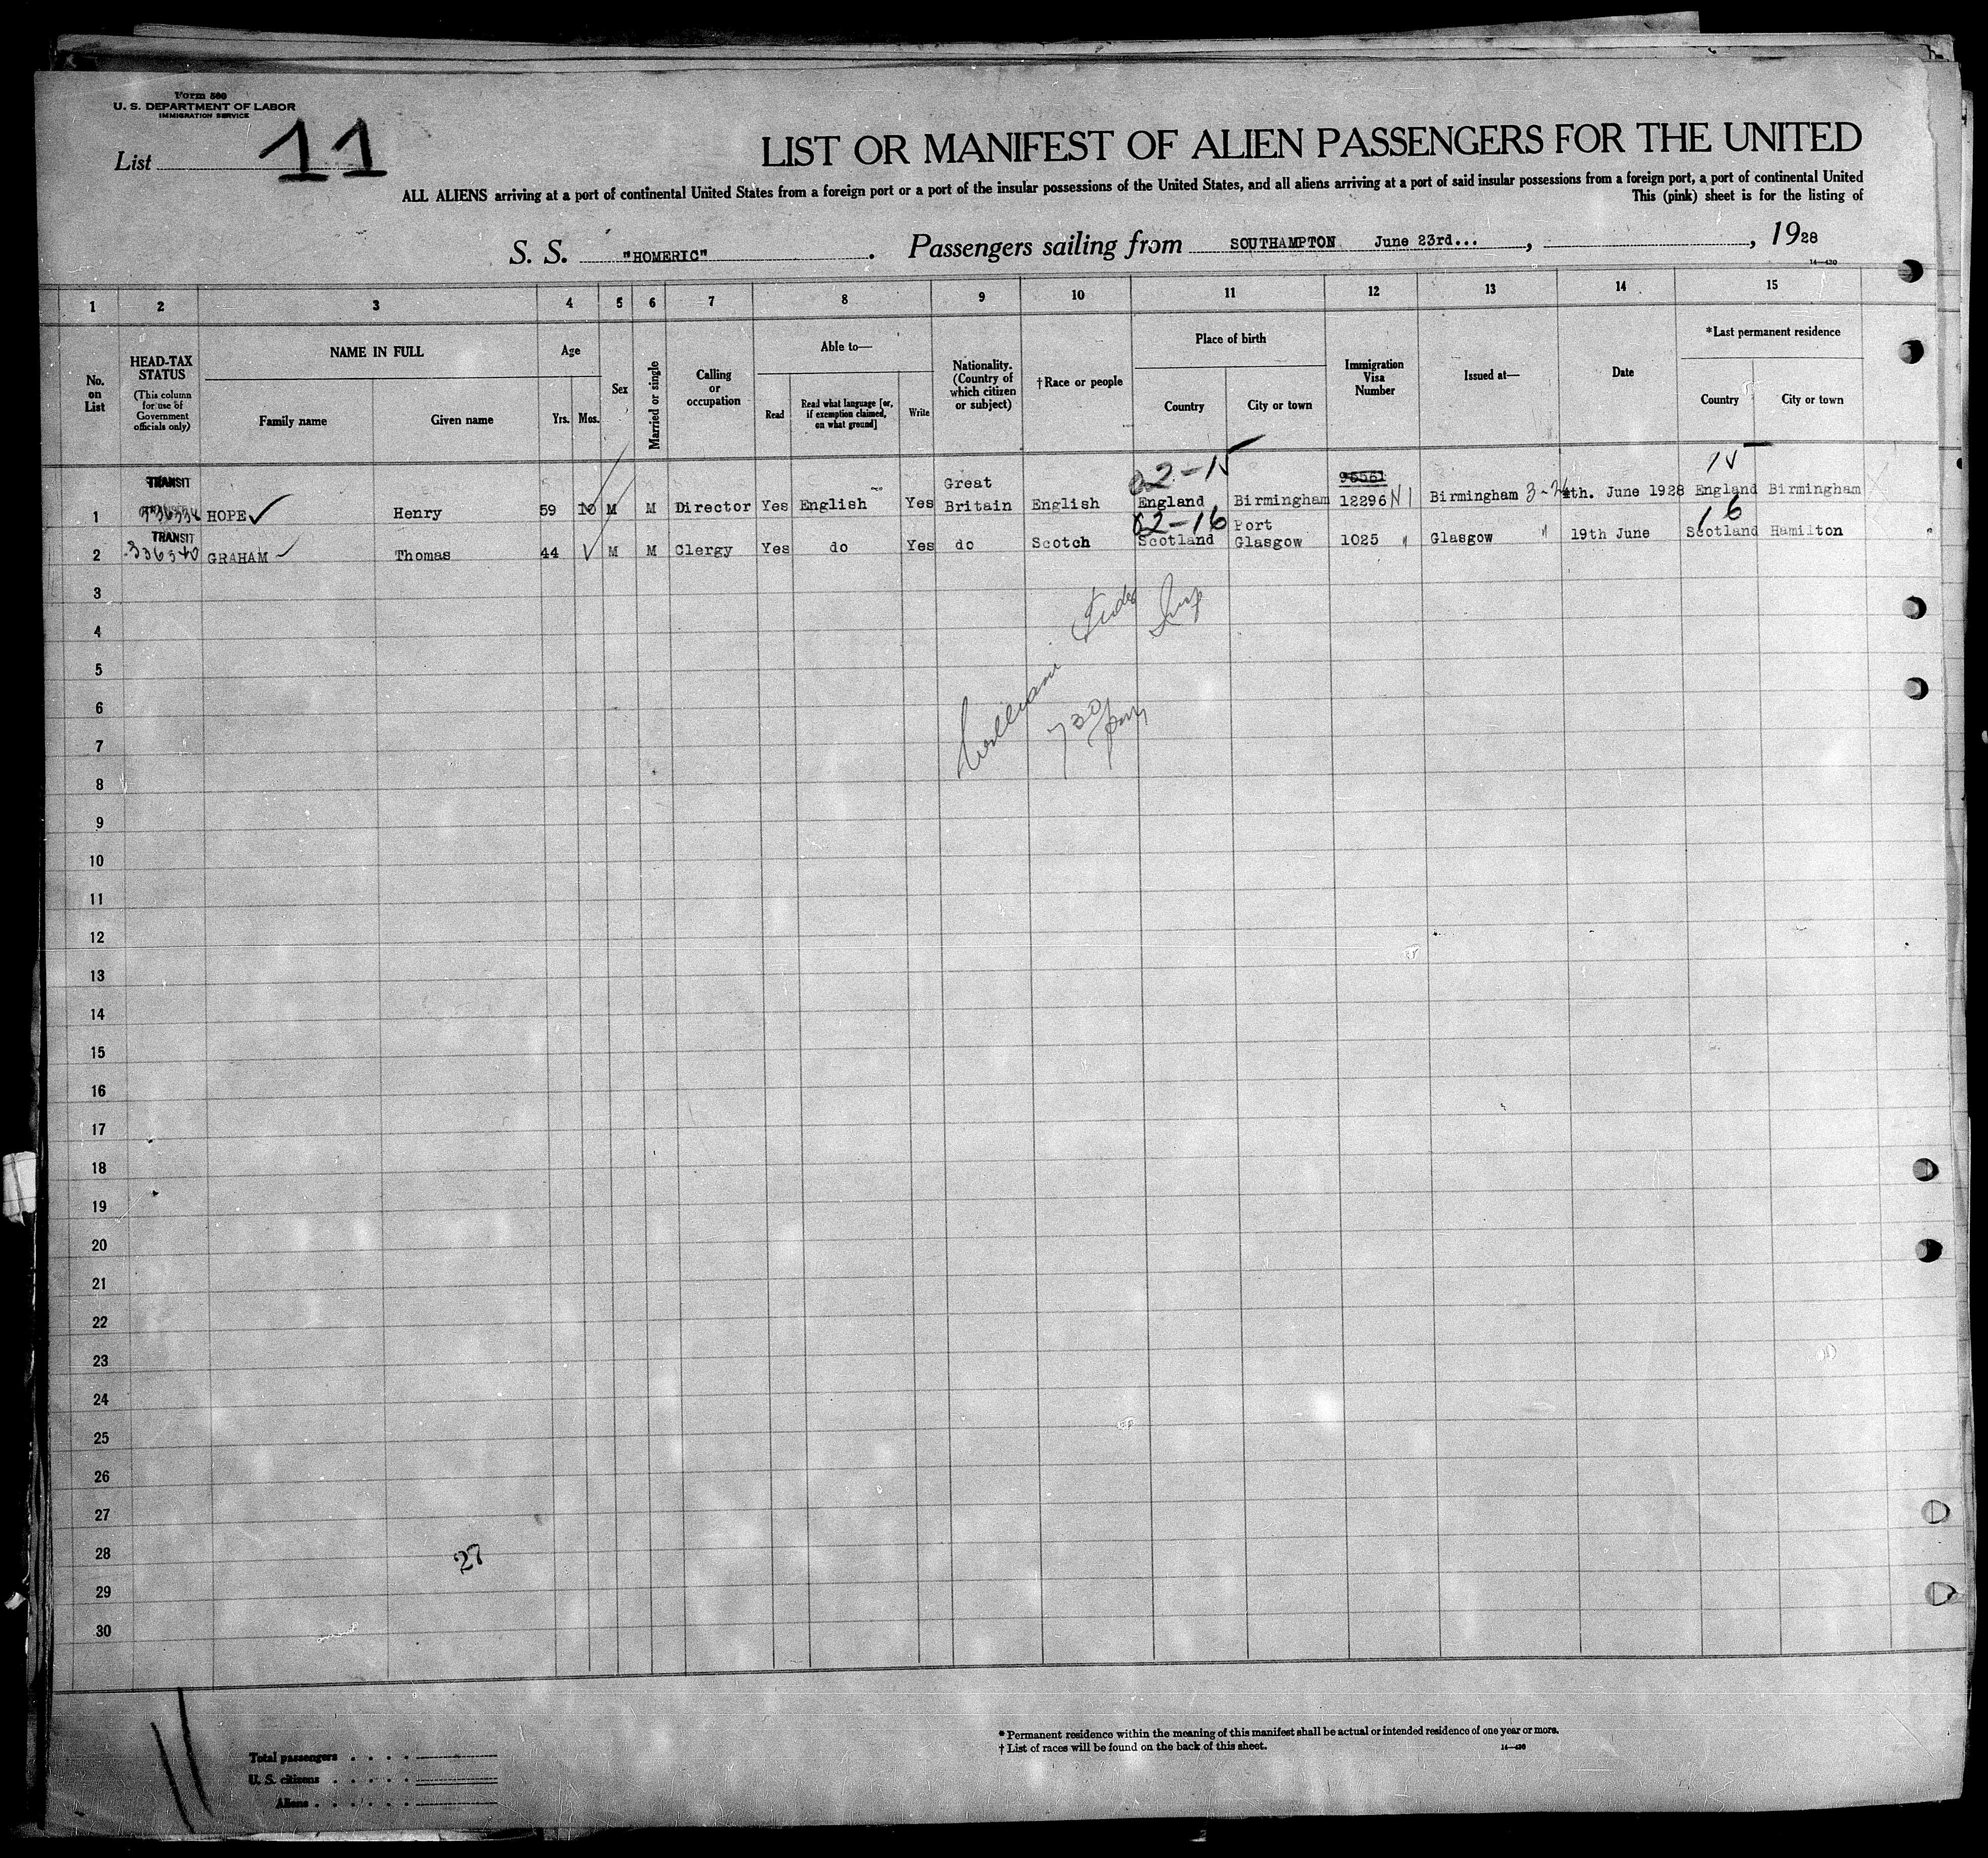 Form 500
U. S. DEPARTMENT OF LABOR
IMMIGRATION SERVICE
List 11
LIST OR MANIFEST OF ALIEN PASSENGERS FOR THE UNITED
ALL ALIENS arriving at a port of continental United States from a foreign port or a port of the insular possessions of the United States, and all aliens arriving at a port of said insular possessions from a foreign port, a port of continental United
This (pink) sheet is for the listing of
S. S. "HOMERIC". Passengers sailing from SOUTHAMPTON June 23rd..., , 1928
14—430
1 2 3 4 5 6 7 8 9 10 11 12 13 14 15
No. on List
HEAD-TAX STATUS
(This column for use of Government officials only)
NAME IN FULL
Family name Given name
Age
Yrs. Mos.
Sex
Married or single
Calling or occupation
Able to—
Read
Read what language [or, if exemption claimed, on what ground]
Write
Nationality. (Country of which citizen or subject)
†Race or people
Place of birth
Country City or town
Immigration Visa Number
Issued at—
Date
*Last permanent residence
Country City or town
TRANSIT Great 02-15 95551 15
1 HOPE Henry 59 10 M M Director Yes English Yes Britain English England Birmingham 12296 Birmingham 4th. June 1928 England Birmingham
TRANSIT 02-16 Port 16
2 336340 GRAHAM Thomas 44 M M Clergy Yes do Yes do Scotch Scotland Glasgow 1025 " Glasgow " 19th June Scotland Hamilton
3
4
5
6
7
730 pm
8
9
10
11
12
13
14
15
16
17
18
19
20
21
22
23
24
25
26
27
28
27
29
30
* Permanent residence within the meaning of this manifest shall be actual or intended residence of one year or more.
† List of races will be found on the back of this sheet.
14—430
Total passengers . . . .
U. S. citizens . . . . .
Aliens . . . . . .